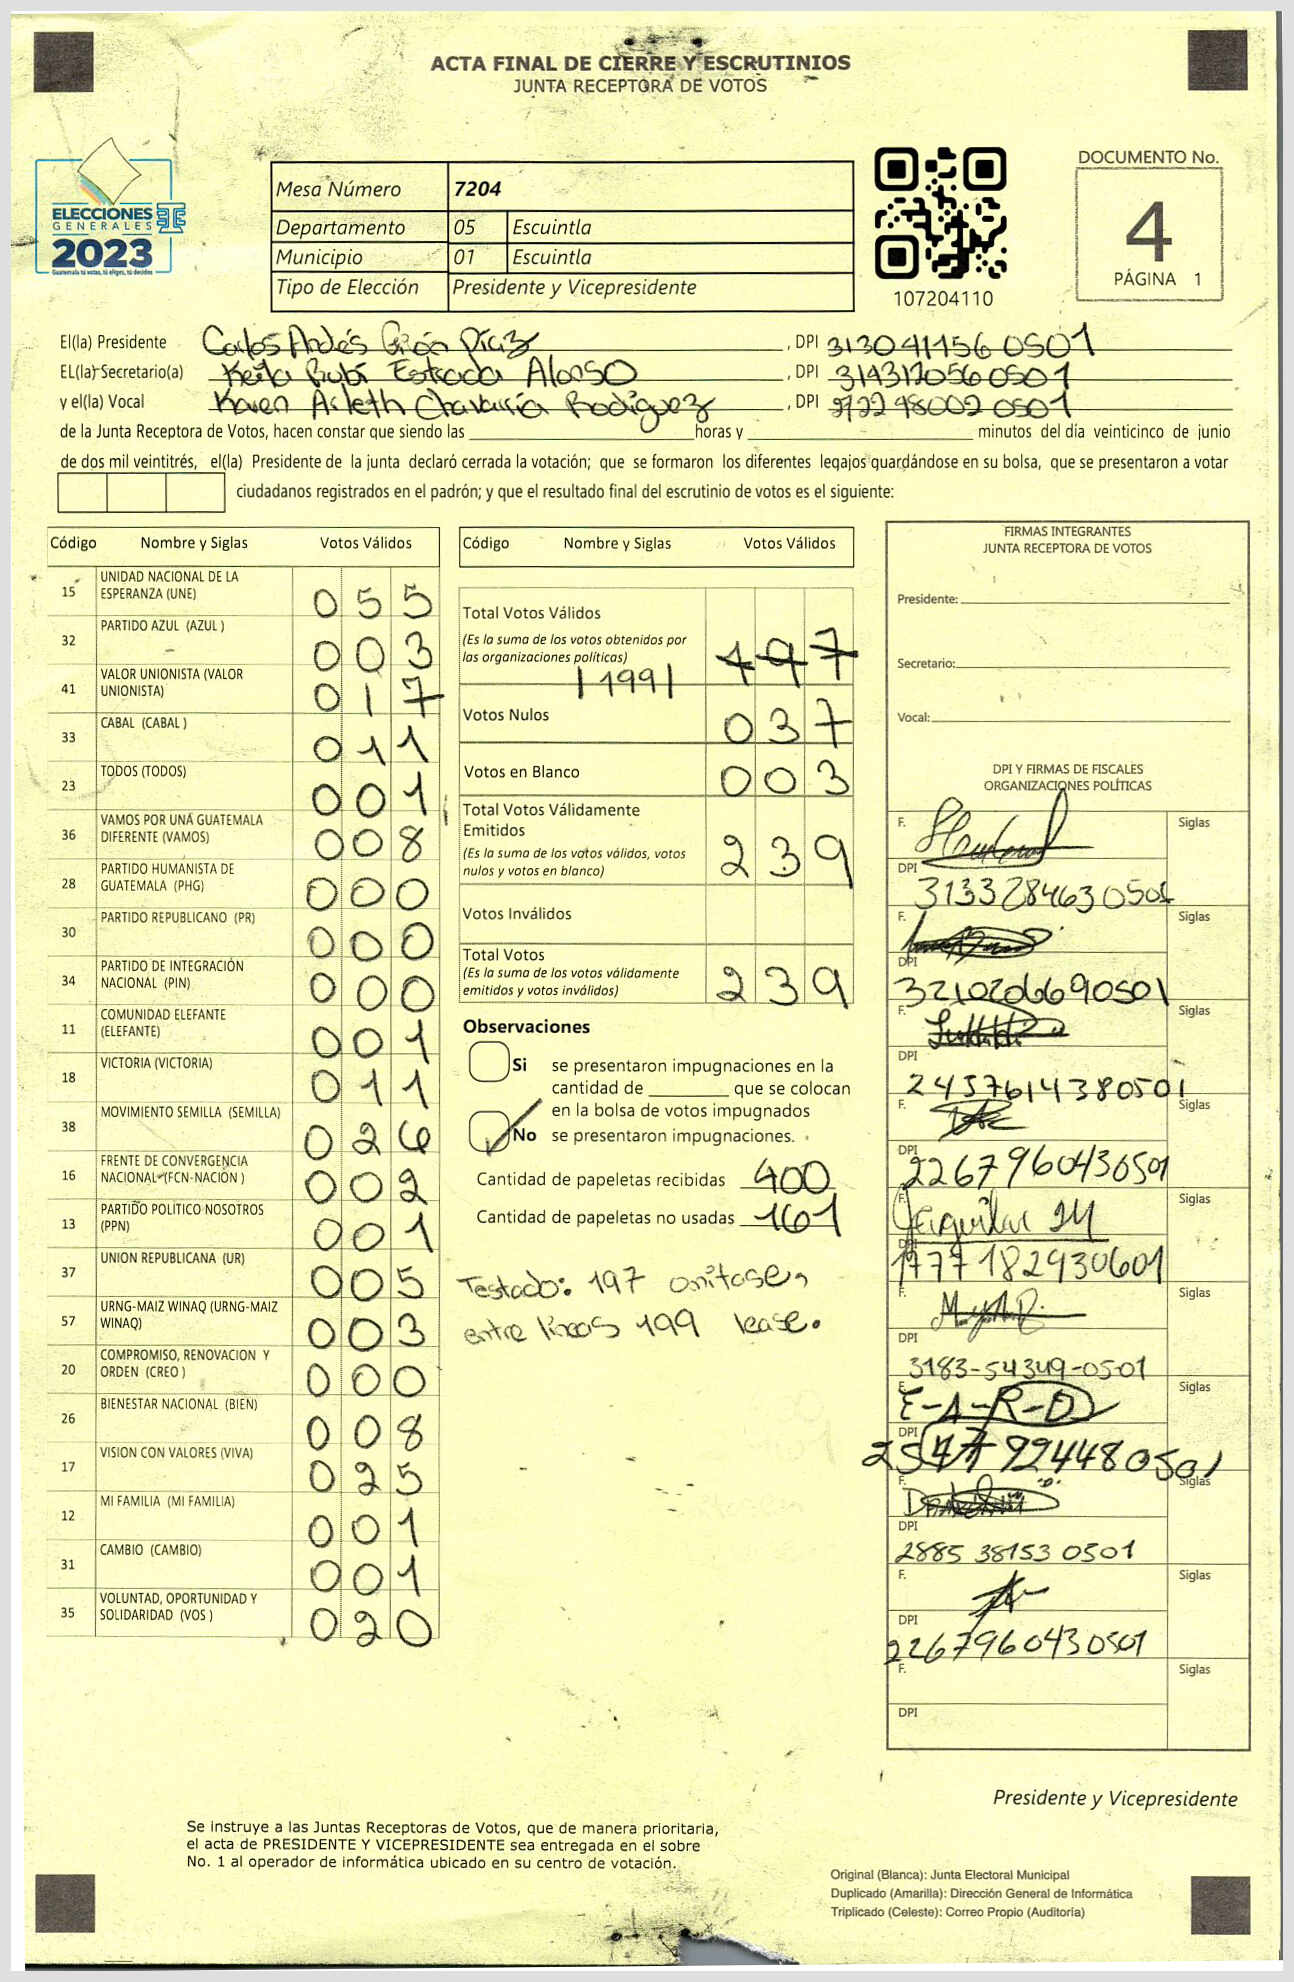 ACTA FINAL DE CIERRE Y ESCRUTINIOS
JUNTA RECEPTORA DE VOTOS
ELECCIONES
GENERALES
2023
Guatemala tú votas, tú eliges, tú decides
Mesa Número 7204
Departamento 05 Escuintla
Municipio 01 Escuintla
Tipo de Elección Presidente y Vicepresidente
107204110
DOCUMENTO No.
4
PÁGINA 1
El(la) Presidente Carlos Andrés Girón Díaz, DPI 313041156 0501
EL(la) Secretario(a) Keila Rubí Estrada Alonso, DPI 314312056 0501
y el(la) Vocal Karen Arleth Chavarría Rodríguez, DPI 272298002 0501
de la Junta Receptora de Votos, hacen constar que siendo las horas y minutos del día veinticinco de junio
de dos mil veintitrés, el(la) Presidente de la junta declaró cerrada la votación; que se formaron los diferentes legajos guardándose en su bolsa, que se presentaron a votar
ciudadanos registrados en el padrón; y que el resultado final del escrutinio de votos es el siguiente:
Código Nombre y Siglas Votos Válidos
15 UNIDAD NACIONAL DE LA ESPERANZA (UNE) 055
32 PARTIDO AZUL (AZUL ) 003
41 VALOR UNIONISTA (VALOR UNIONISTA) 017
33 CABAL (CABAL ) 011
23 TODOS (TODOS) 001
36 VAMOS POR UNA GUATEMALA DIFERENTE (VAMOS) 008
28 PARTIDO HUMANISTA DE GUATEMALA (PHG) 000
30 PARTIDO REPUBLICANO (PR) 000
34 PARTIDO DE INTEGRACIÓN NACIONAL (PIN) 000
11 COMUNIDAD ELEFANTE (ELEFANTE) 001
18 VICTORIA (VICTORIA) 011
38 MOVIMIENTO SEMILLA (SEMILLA) 026
16 FRENTE DE CONVERGENCIA NACIONAL (FCN-NACIÓN ) 002
13 PARTIDO POLÍTICO NOSOTROS (PPN) 001
37 UNION REPUBLICANA (UR) 005
57 URNG-MAIZ WINAQ (URNG-MAIZ WINAQ) 003
20 COMPROMISO, RENOVACION Y ORDEN (CREO ) 000
26 BIENESTAR NACIONAL (BIEN) 008
17 VISION CON VALORES (VIVA) 025
12 MI FAMILIA (MI FAMILIA) 001
31 CAMBIO (CAMBIO) 001
35 VOLUNTAD, OPORTUNIDAD Y SOLIDARIDAD (VOS ) 020
Código Nombre y Siglas Votos Válidos
Total Votos Válidos
(Es la suma de los votos obtenidos por
las organizaciones políticas) 197
|199|
Votos Nulos 037
Votos en Blanco 003
Total Votos Válidamente
Emitidos
(Es la suma de los votos válidos, votos
nulos y votos en blanco) 239
Votos Inválidos
Total Votos
(Es la suma de los votos válidamente
emitidos y votos inválidos) 239
Observaciones
Si se presentaron impugnaciones en la
cantidad de que se colocan
en la bolsa de votos impugnados
No se presentaron impugnaciones.
Cantidad de papeletas recibidas 400
Cantidad de papeletas no usadas 161
Testado: 197 omitase,
entre lineas 199 lease.
FIRMAS INTEGRANTES
JUNTA RECEPTORA DE VOTOS
Presidente:
Secretario:
Vocal:
DPI Y FIRMAS DE FISCALES
ORGANIZACIONES POLÍTICAS
F. Siglas
DPI 3133284630501
F. Siglas
DPI 3210206690501
F. Siglas
DPI 2457614380501
F. Siglas
DPI 2267960430501
F. Siglas
DPI 1777182930601
F. Siglas
DPI 3183-54349-0501
F. E-A-R-D Siglas
DPI 25477924480501
F. Siglas
DPI 2885 38153 0501
F. Siglas
DPI 2267960430501
F. Siglas
DPI
Presidente y Vicepresidente
Se instruye a las Juntas Receptoras de Votos, que de manera prioritaria,
el acta de PRESIDENTE Y VICEPRESIDENTE sea entregada en el sobre
No. 1 al operador de informática ubicado en su centro de votación.
Original (Blanca): Junta Electoral Municipal
Duplicado (Amarilla): Dirección General de Informática
Triplicado (Celeste): Correo Propio (Auditoría)